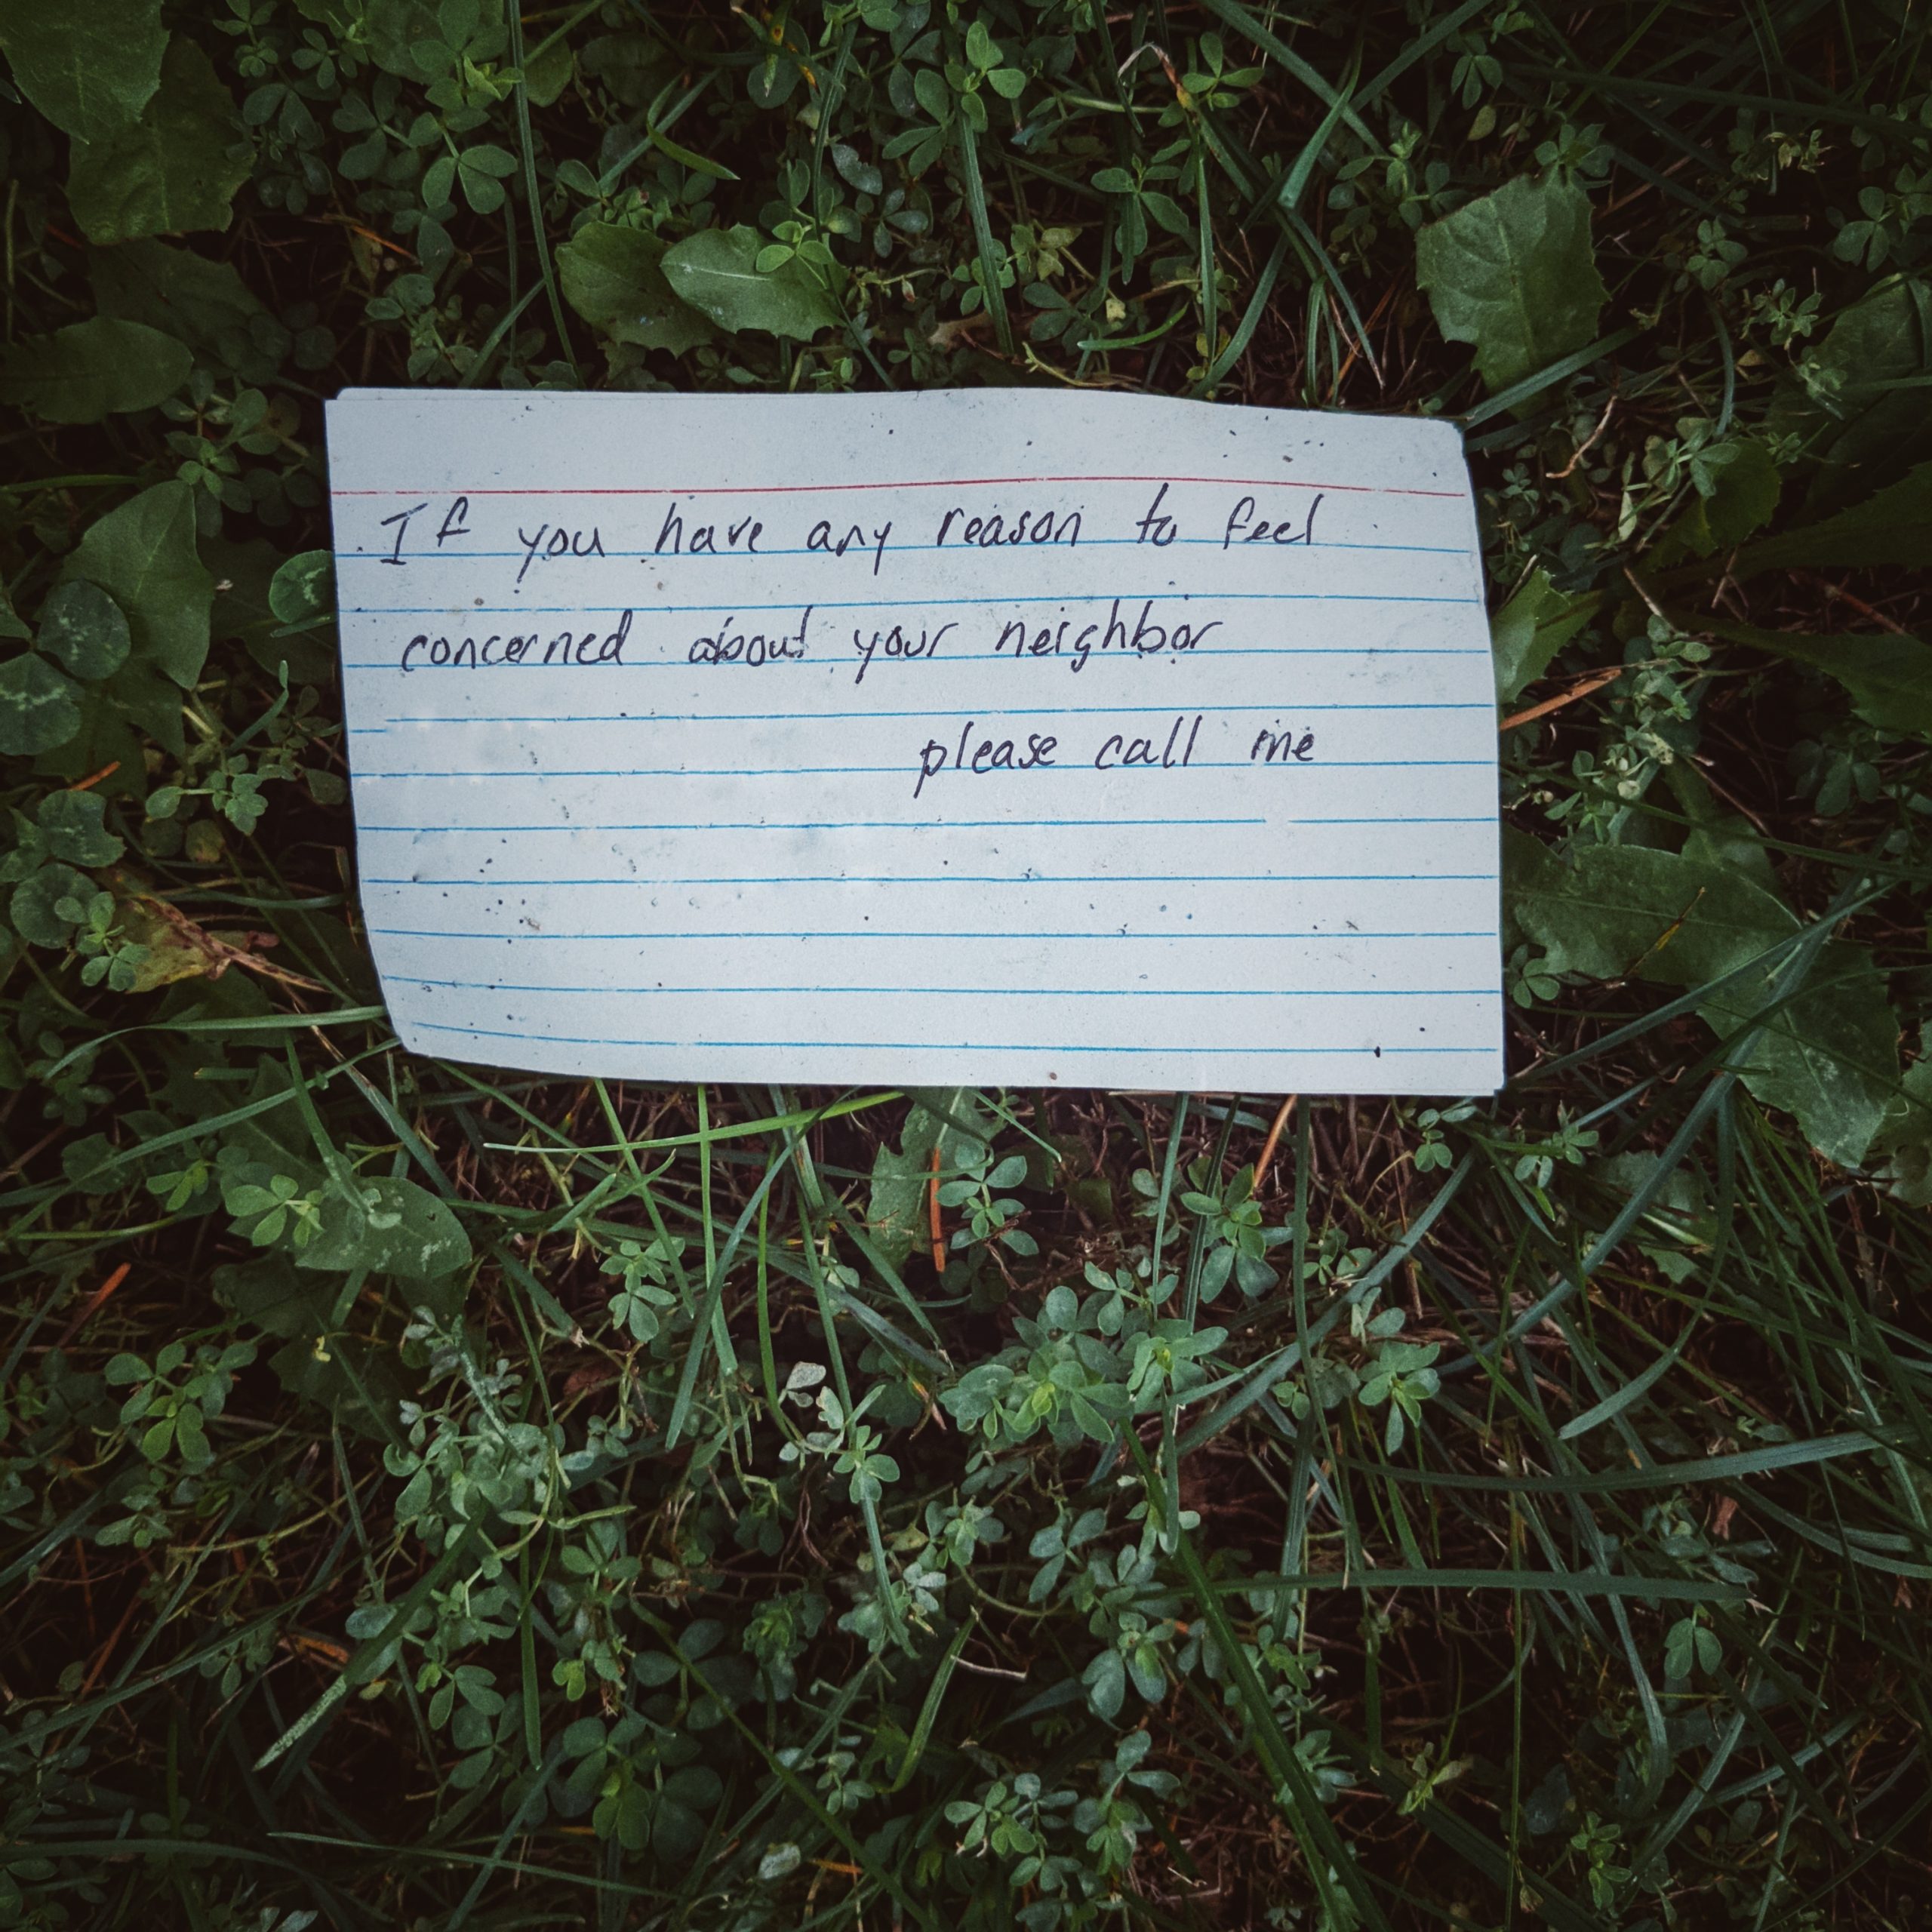 If you have any reason to feel
concerned about your neighbor
please call me